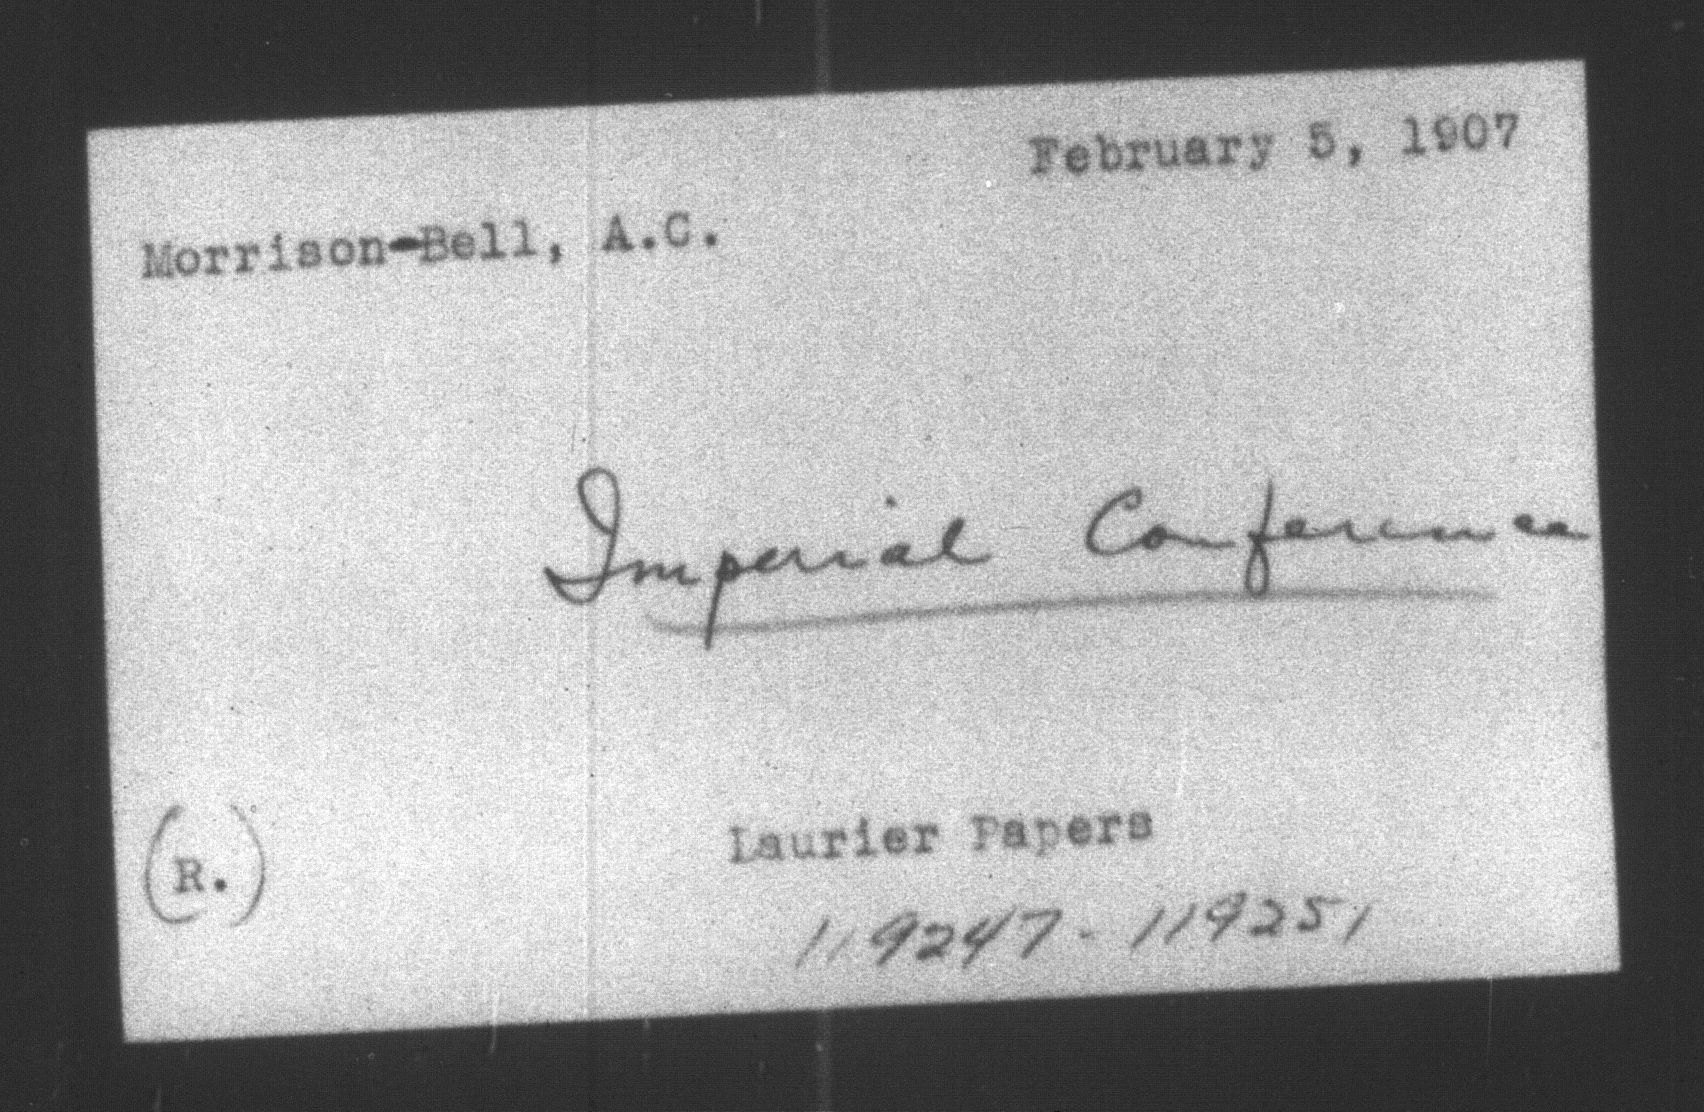 February 5, 1907
Morrison-Bell, A.C.
Imperial Conference
Laurier Papers
(R.)
119247 - 119251